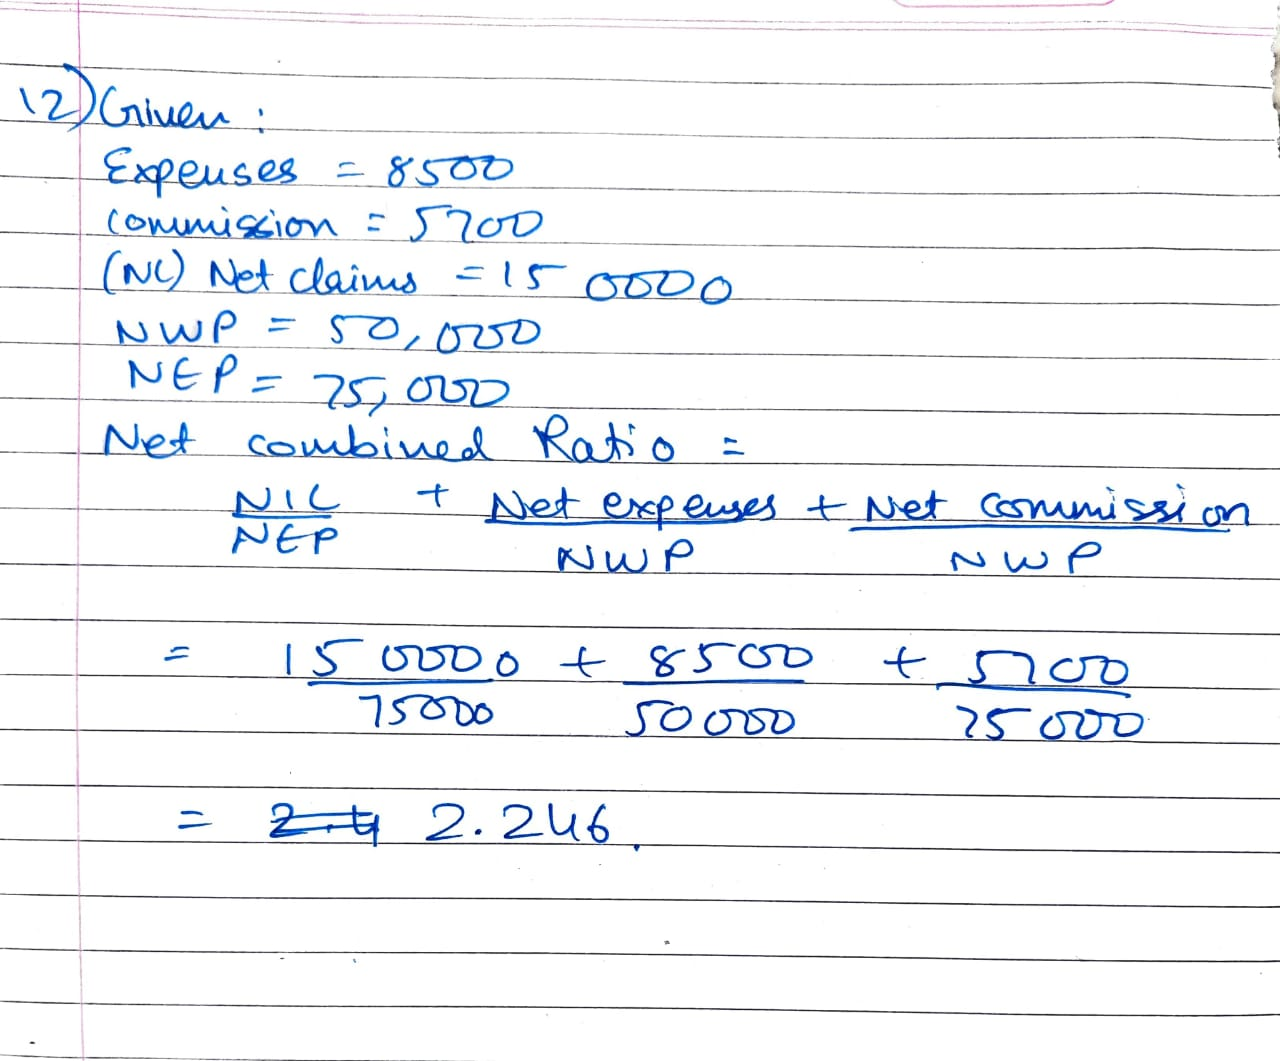 12) Given :
Expenses = 8500
commission = 5700
(NC) Net claims = 15 0000
NWP = 50,000
NEP = 75,000
Net combined Ratio =
NIC + Net expenses + Net commission
NEP NWP NWP
= 15 0000 + 8500 + 5700
75000 50000 75000
= 2.4 2.246.